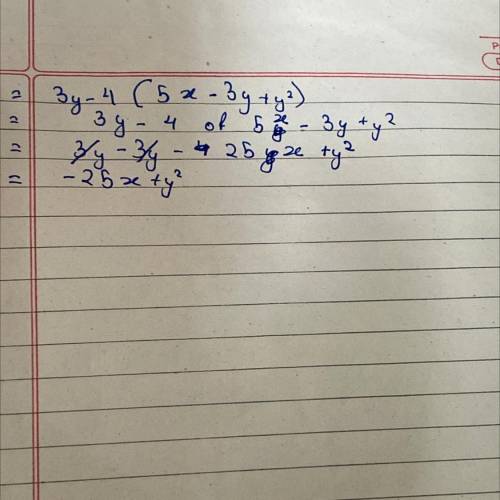 = 3y - 4 (5x - 3y + y²)
= 3y - 4 of 5x - 3y + y²
= 3y - 3y - 25x + y²
= - 25x + y²